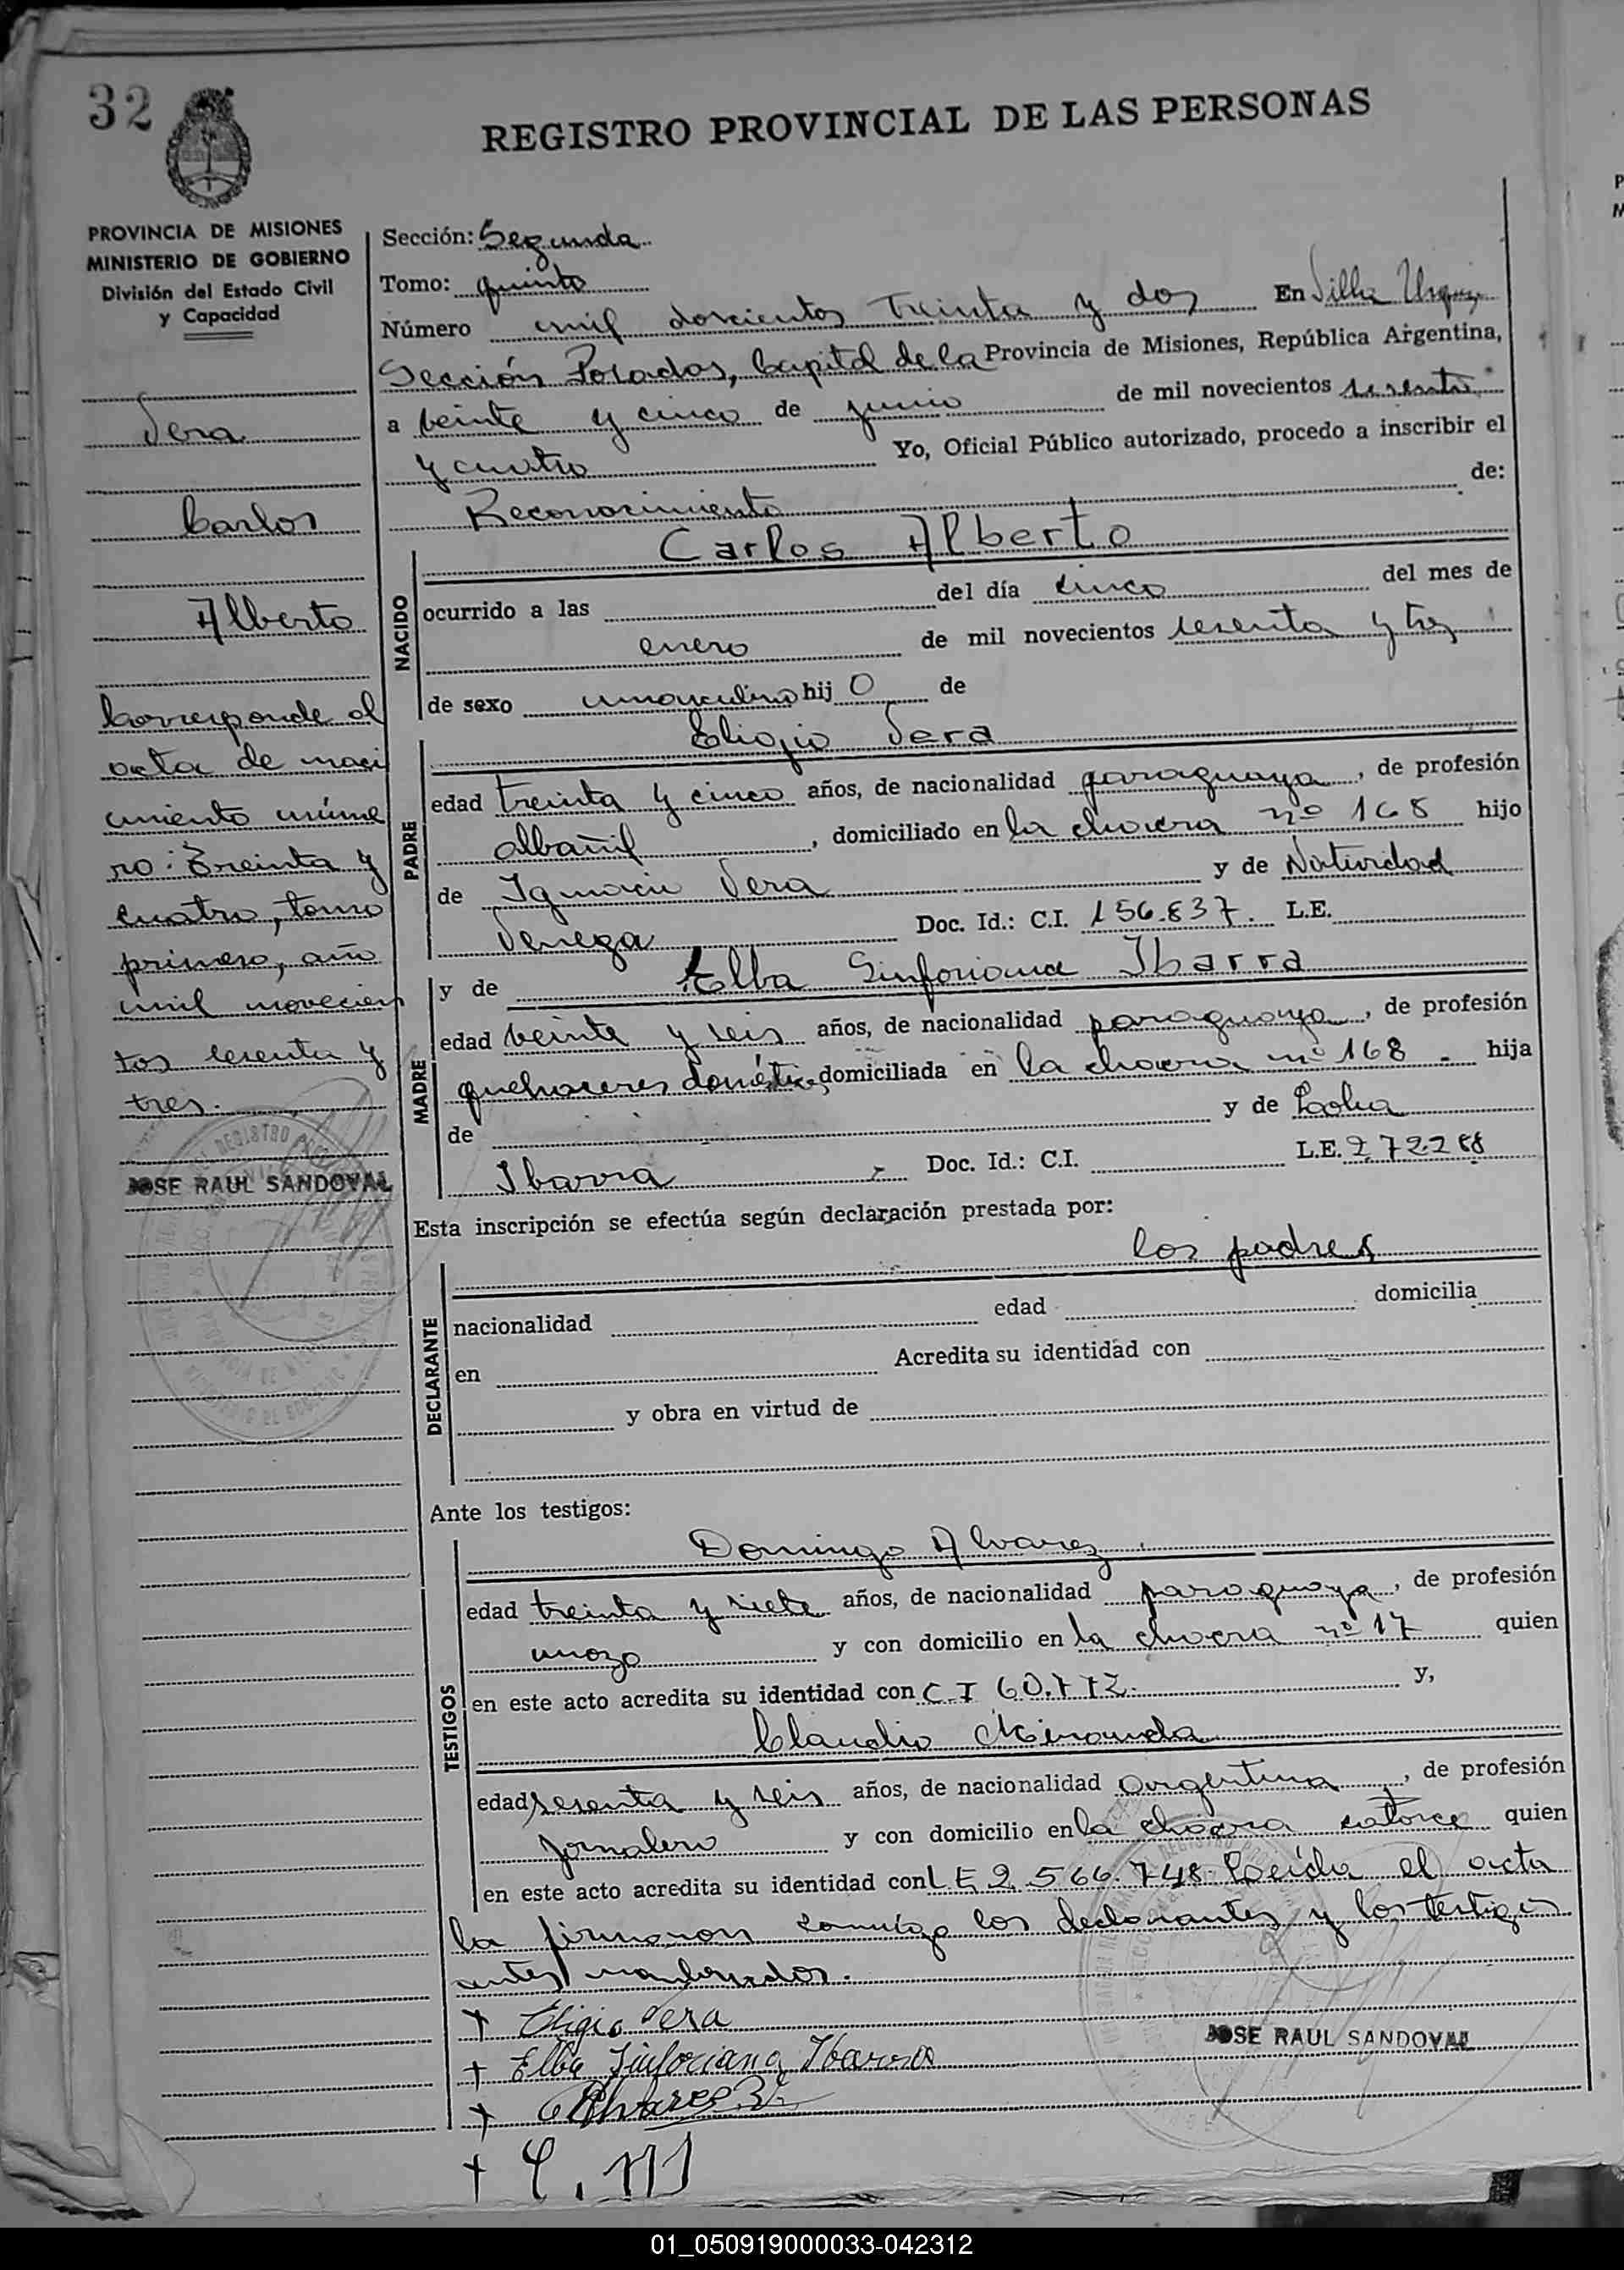 32
REGISTRO PROVINCIAL DE LAS PERSONAS
PROVINCIA DE MISIONES
MINISTERIO DE GOBIERNO
División del Estado Civil
y Capacidad
Vera
Carlos
Alberto
Corresponde al
acta de naci
miento núme
ro: Treinta y
cuatro, tomo
primero, año
mil novecien
tos sesenta y
tres.
JOSE RAUL SANDOVAL
Sección: Segunda
Tomo: quinto
Número mil doscientos treinta y dos En Villa Urquiza
Sección Posadas, Capital de la Provincia de Misiones, República Argentina,
a veinte y cinco de junio de mil novecientos sesenta
y cuatro Yo, Oficial Público autorizado, procedo a inscribir el
Reconocimiento de:
NACIDO
Carlos Alberto
ocurrido a las del día cinco del mes de
enero de mil novecientos sesenta y tres
de sexo masculino hij o de
PADRE
Eligio Vera
edad treinta y cinco años, de nacionalidad paraguaya, de profesión
albañil, domiciliado en la chacra nº 168 hijo
de Ignacio Vera y de Natividad
Venega Doc. Id.: C.I. 156.837. L.E.
MADRE
y de Elba Sinforiana Ibarra
edad veinte y seis años, de nacionalidad paraguaya, de profesión
quehaceres domésticos, domiciliada en la chacra nº 168 - hija
de y de
Ibarra Doc. Id.: C.I. L.E. 272288
Esta inscripción se efectúa según declaración prestada por:
DECLARANTE
los padres
nacionalidad edad domicilia
en Acredita su identidad con
y obra en virtud de
Ante los testigos:
TESTIGOS
Domingo Alvarez
edad treinta y siete años, de nacionalidad paraguaya, de profesión
mozo y con domicilio en la chacra nº 17 quien
en este acto acredita su identidad con C.I y,
Claudio Miranda
edad sesenta y seis años, de nacionalidad argentina, de profesión
jornalero y con domicilio en la chacra catorce quien
en este acto acredita su identidad con L E 2.566.748. Leída el acta
la firmaron conmigo los declarantes y los testigos
antes nombrados.
+ Eligio Vera
+ Elba Sinforiana Ibarra
+ Alvarez
+ C. M
JOSE RAUL SANDOVAL
01_050919000033-042312